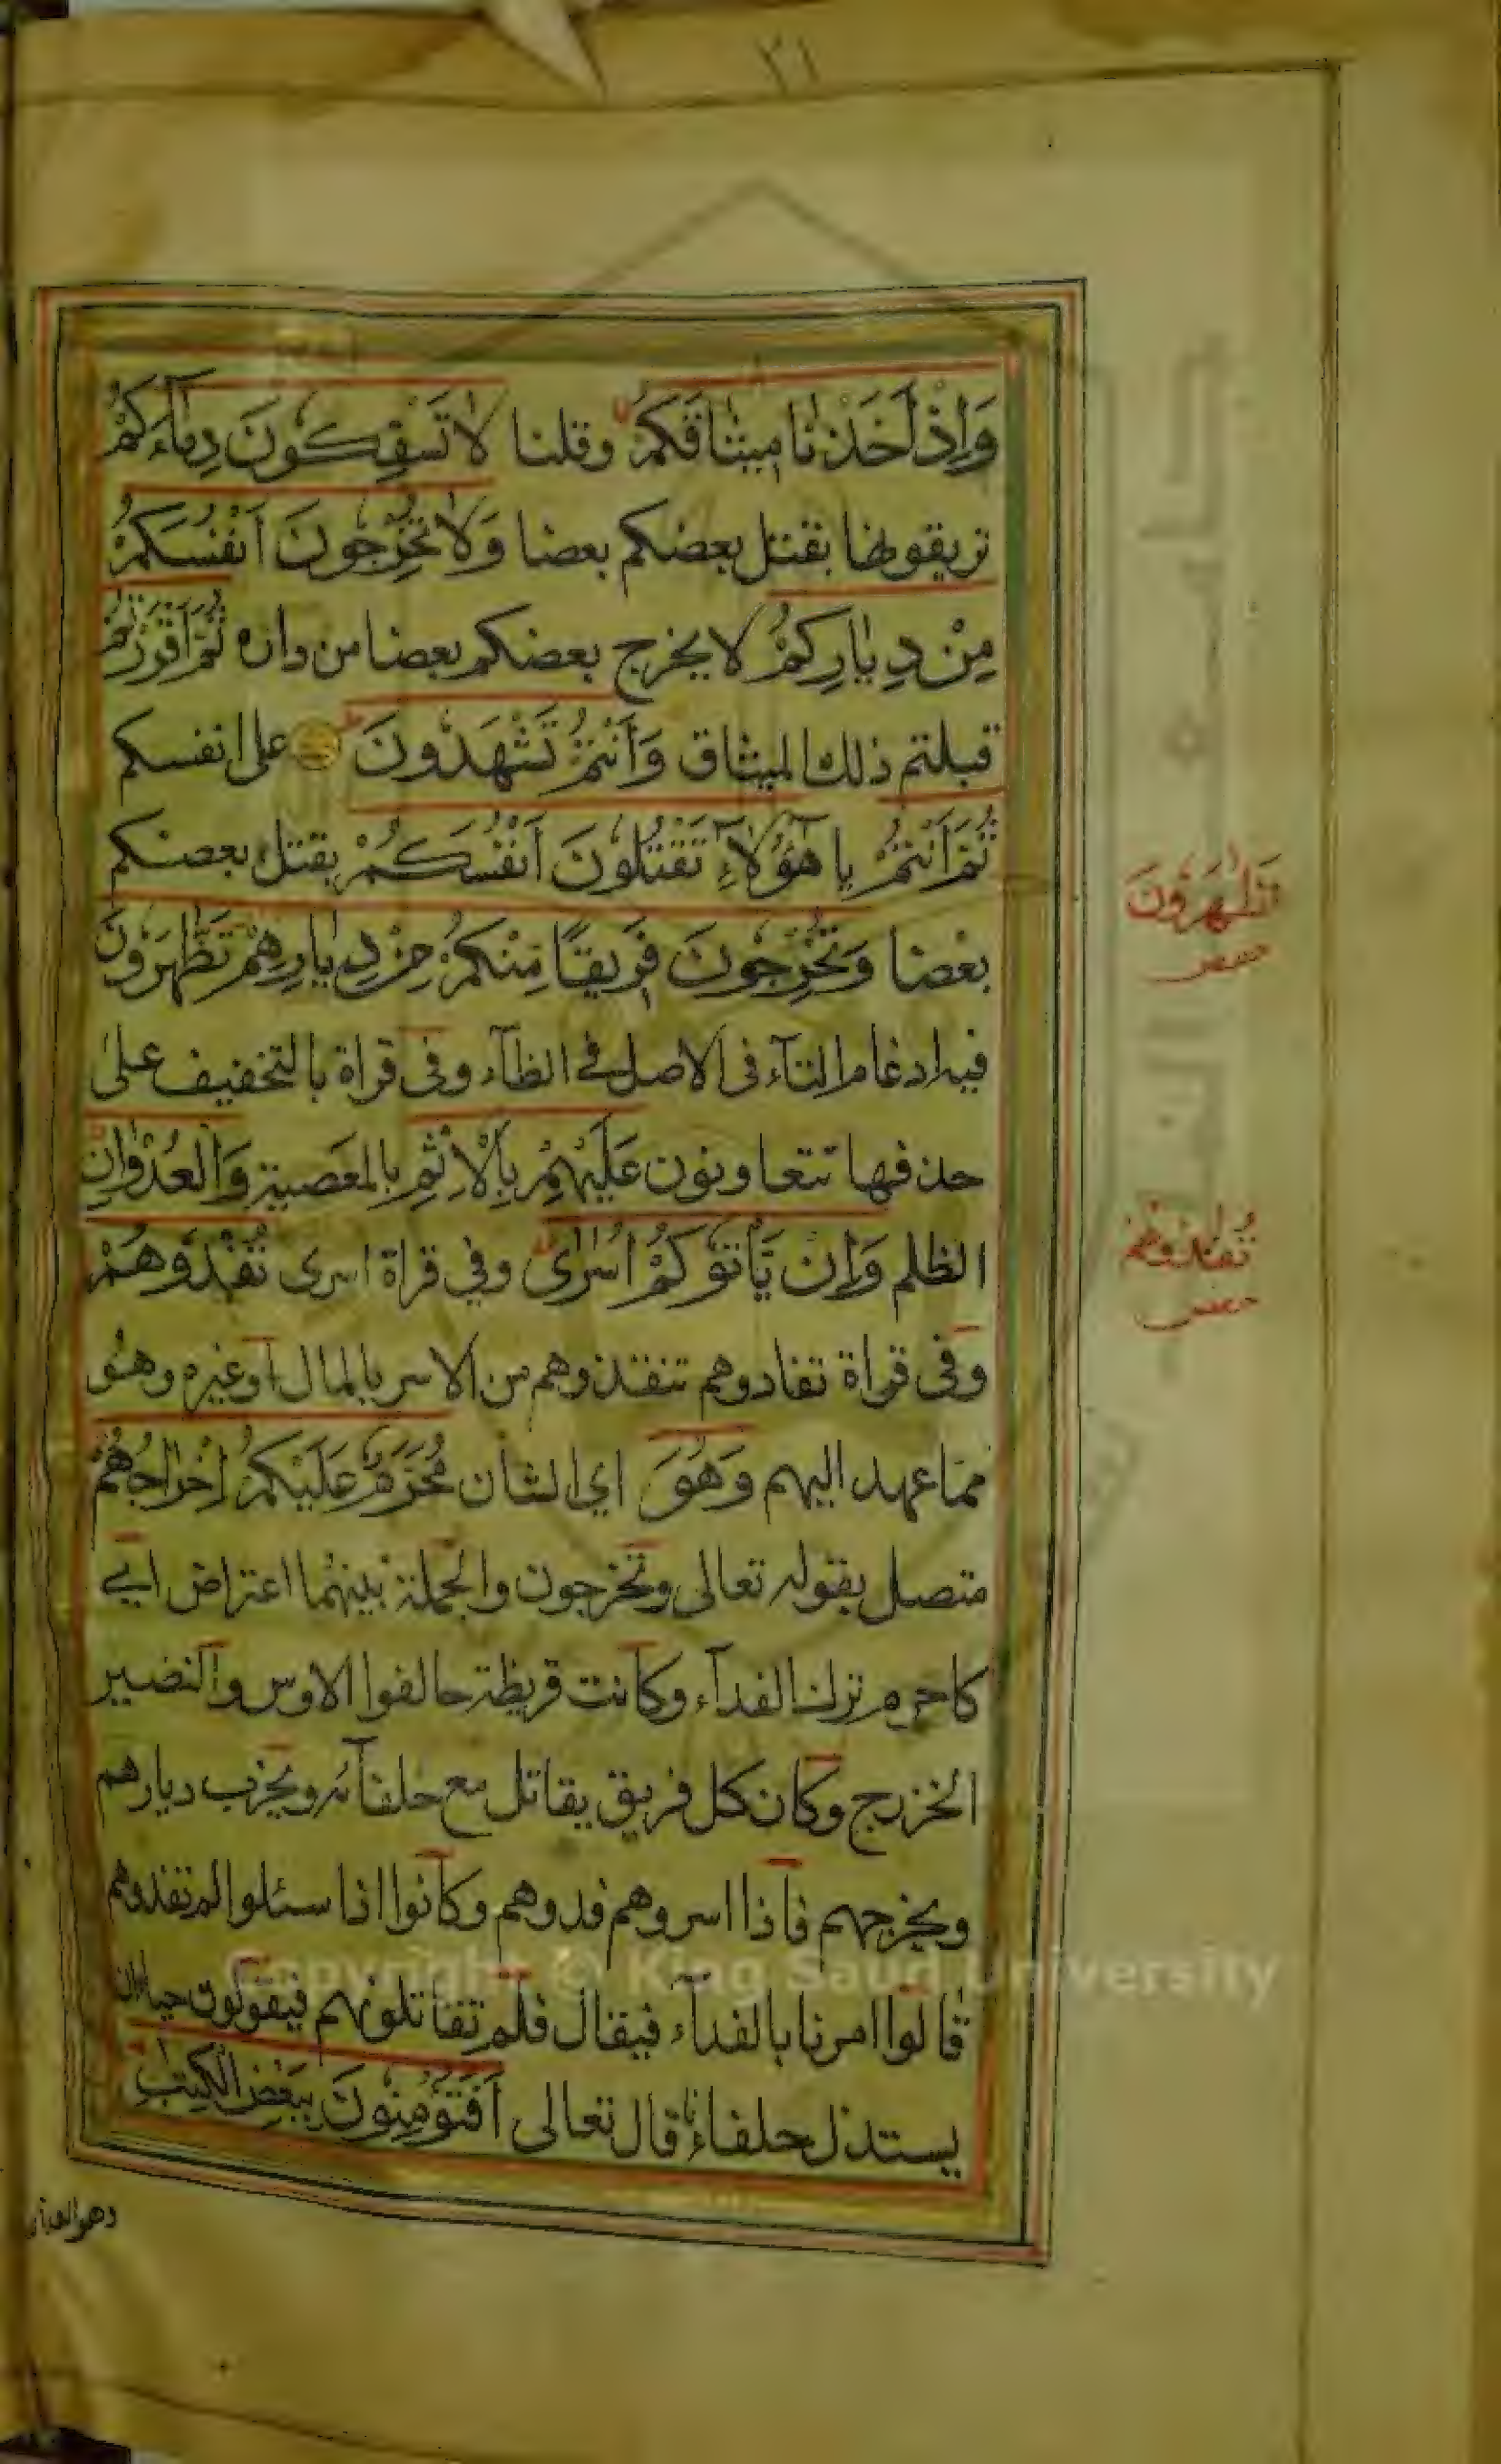 ٢١
وَاِذْ اَخَذْنَا مِيثَاقَكُمْ وقلنا لَا تَسْفِكُونَ دِمَآءَكُمْ
تريقونها بقتل بعضكم بعضا وَلَا تُخْرِجُونَ اَنْفُسَكُمْ
مِنْ دِيَارِكُمْ لا يخرج بعضكم بعضا من داره ثُمَّ اَقْرَرْتُمْ
قبلتم ذلك الميثاق وَاَنْتُمْ تَشْهَدُونَ على انفسكم
ثُمَّ اَنْتُمْ يا هٰٓؤُلَآءِ تَقْتُلُونَ اَنْفُسَكُمْ بقتل بعضكم
بعضا وَتُخْرِجُونَ فَرِيقًا مِنْكُمْ مِنْ دِيَارِهِمْ تَظَّهَرُونَ
تَظٰهَرُونَ
حفص
فيه ادغام التآء فى الاصل في الظآء وفى قراة بالتخفيف على
حذفها تتعاونون عَلَيْهِمْ بِالْاِثْمِ بالمعصية وَالْعُدْوَانِ
الظلم وَاِنْ يَاْتُوكُمْ اُسٰرٰى وفي قراة اسرى تَفْدُوهُمْ
تُفٰدُوهُمْ
حفص
وفى قراة تفادوهم تنقذوهم من الاسر بالمال او غيره وهو
مما عهد اليهم وَهُوَ اي الشان مُحَرَّمٌ عَلَيْكُمْ اِخْرَاجُهُمْ
متصل بقوله تعالى وتخرجون والجملة بينهما اعتراض اي
كما حرم ترك الفدآء وكانت قريظة حالفوا الاوس والنضير
الخزرج وكان كل فريق يقاتل مع حلفآئه ويخرب ديارهم
ويخرجهم فاذا اسروهم فدوهم وكانوا اذا سئلوا لم تفدوهم
قالوا امرنا بالفدآء فيقال فلم تقاتلونهم فيقولون حياء ان
يستذل حلفاءنا قال تعالى اَفَتُؤْمِنُونَ بِبَعْضِ الْكِتٰبِ
وهو الفدآء
Copyright © King Saud University